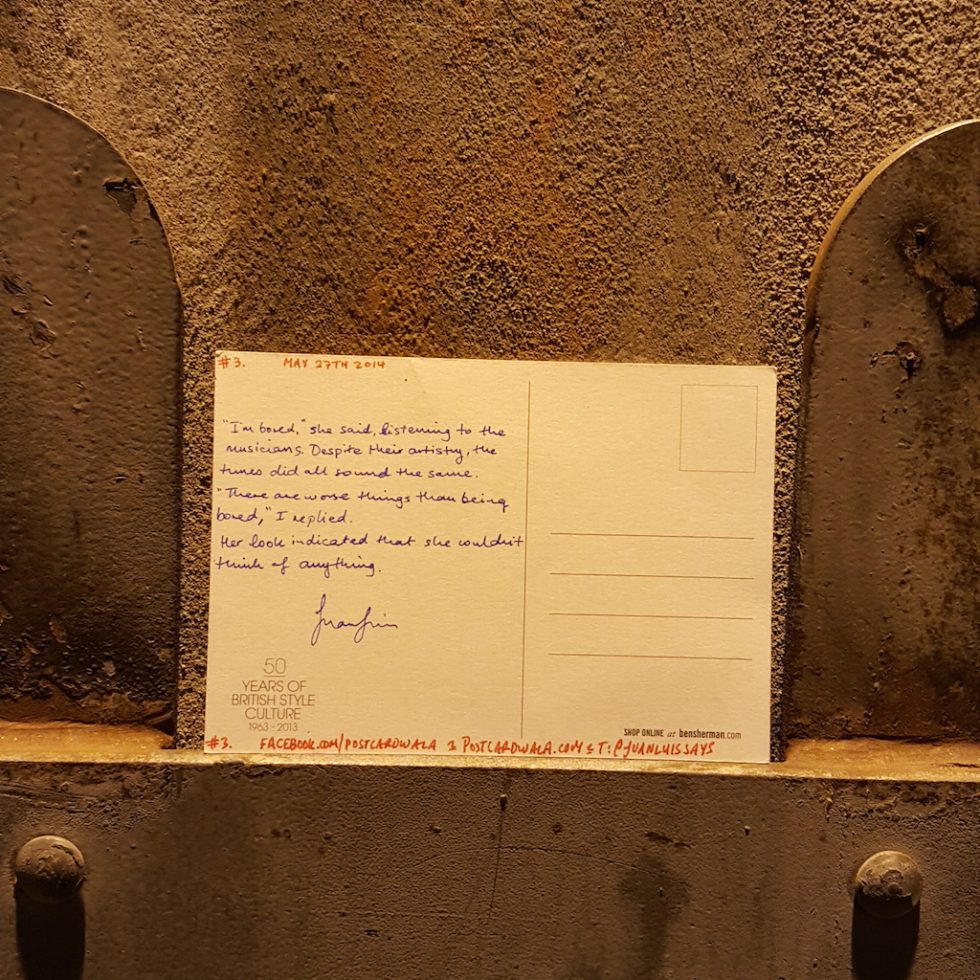 #3. MAY 27TH 2014
"I'm bored," she said, listening to the
musicians. Despite their artistry, the
tunes did all sound the same.
"There are worse things than being
bored," I replied.
Her look indicated that she couldn't
think of anything.
50
YEARS OF
BRITISH STYLE
CULTURE
1963 - 2013
SHOP ONLINE at bensherman.com
#3. FACEBOOK.COM/POSTCARDWALA & POSTCARDWALA.COM & T: @JUANLUISSAYS